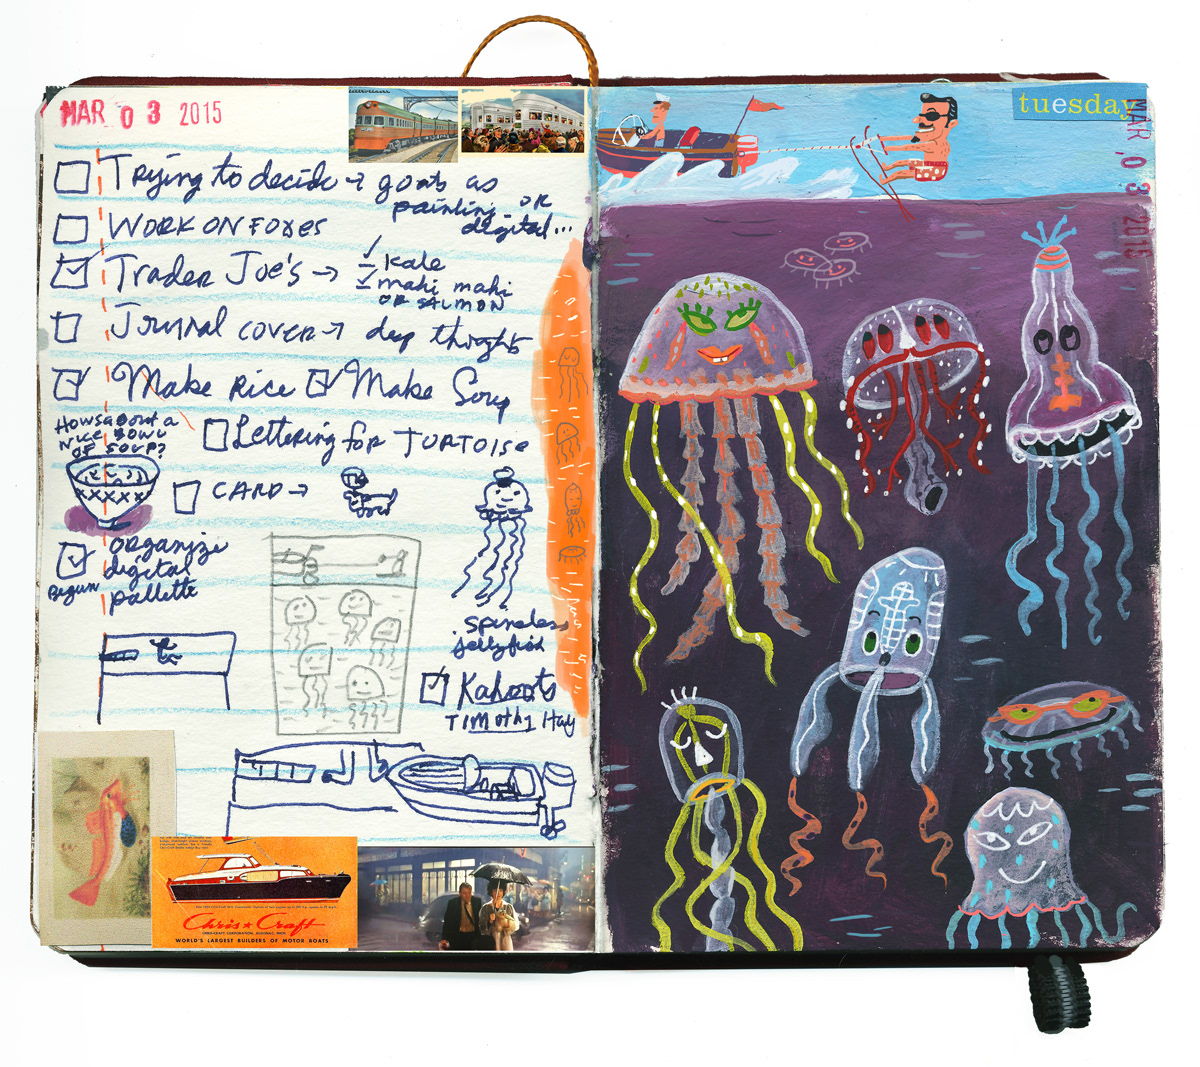 MAR 03 2015
Trying to decide → goats as
painting OR
digital...
WORK ON FOXES
Trader Joe's → kale
mahi mahi
OR SALMON
Journal cover → deep thoughts
Make Rice Make Soup
HOWSABOUT A
NICE BOWL
OF SOUP?
Lettering for TORTOISE
CARD →
organize
digital
pallette
Begun
spineless
jellyfish
Kahoots
TIMOTHY Hay
Chris★Craft
CHRIS-CRAFT CORPORATION, ALGONAC, MICH.
WORLD'S LARGEST BUILDERS OF MOTOR BOATS
tuesday
MAR 03 2015